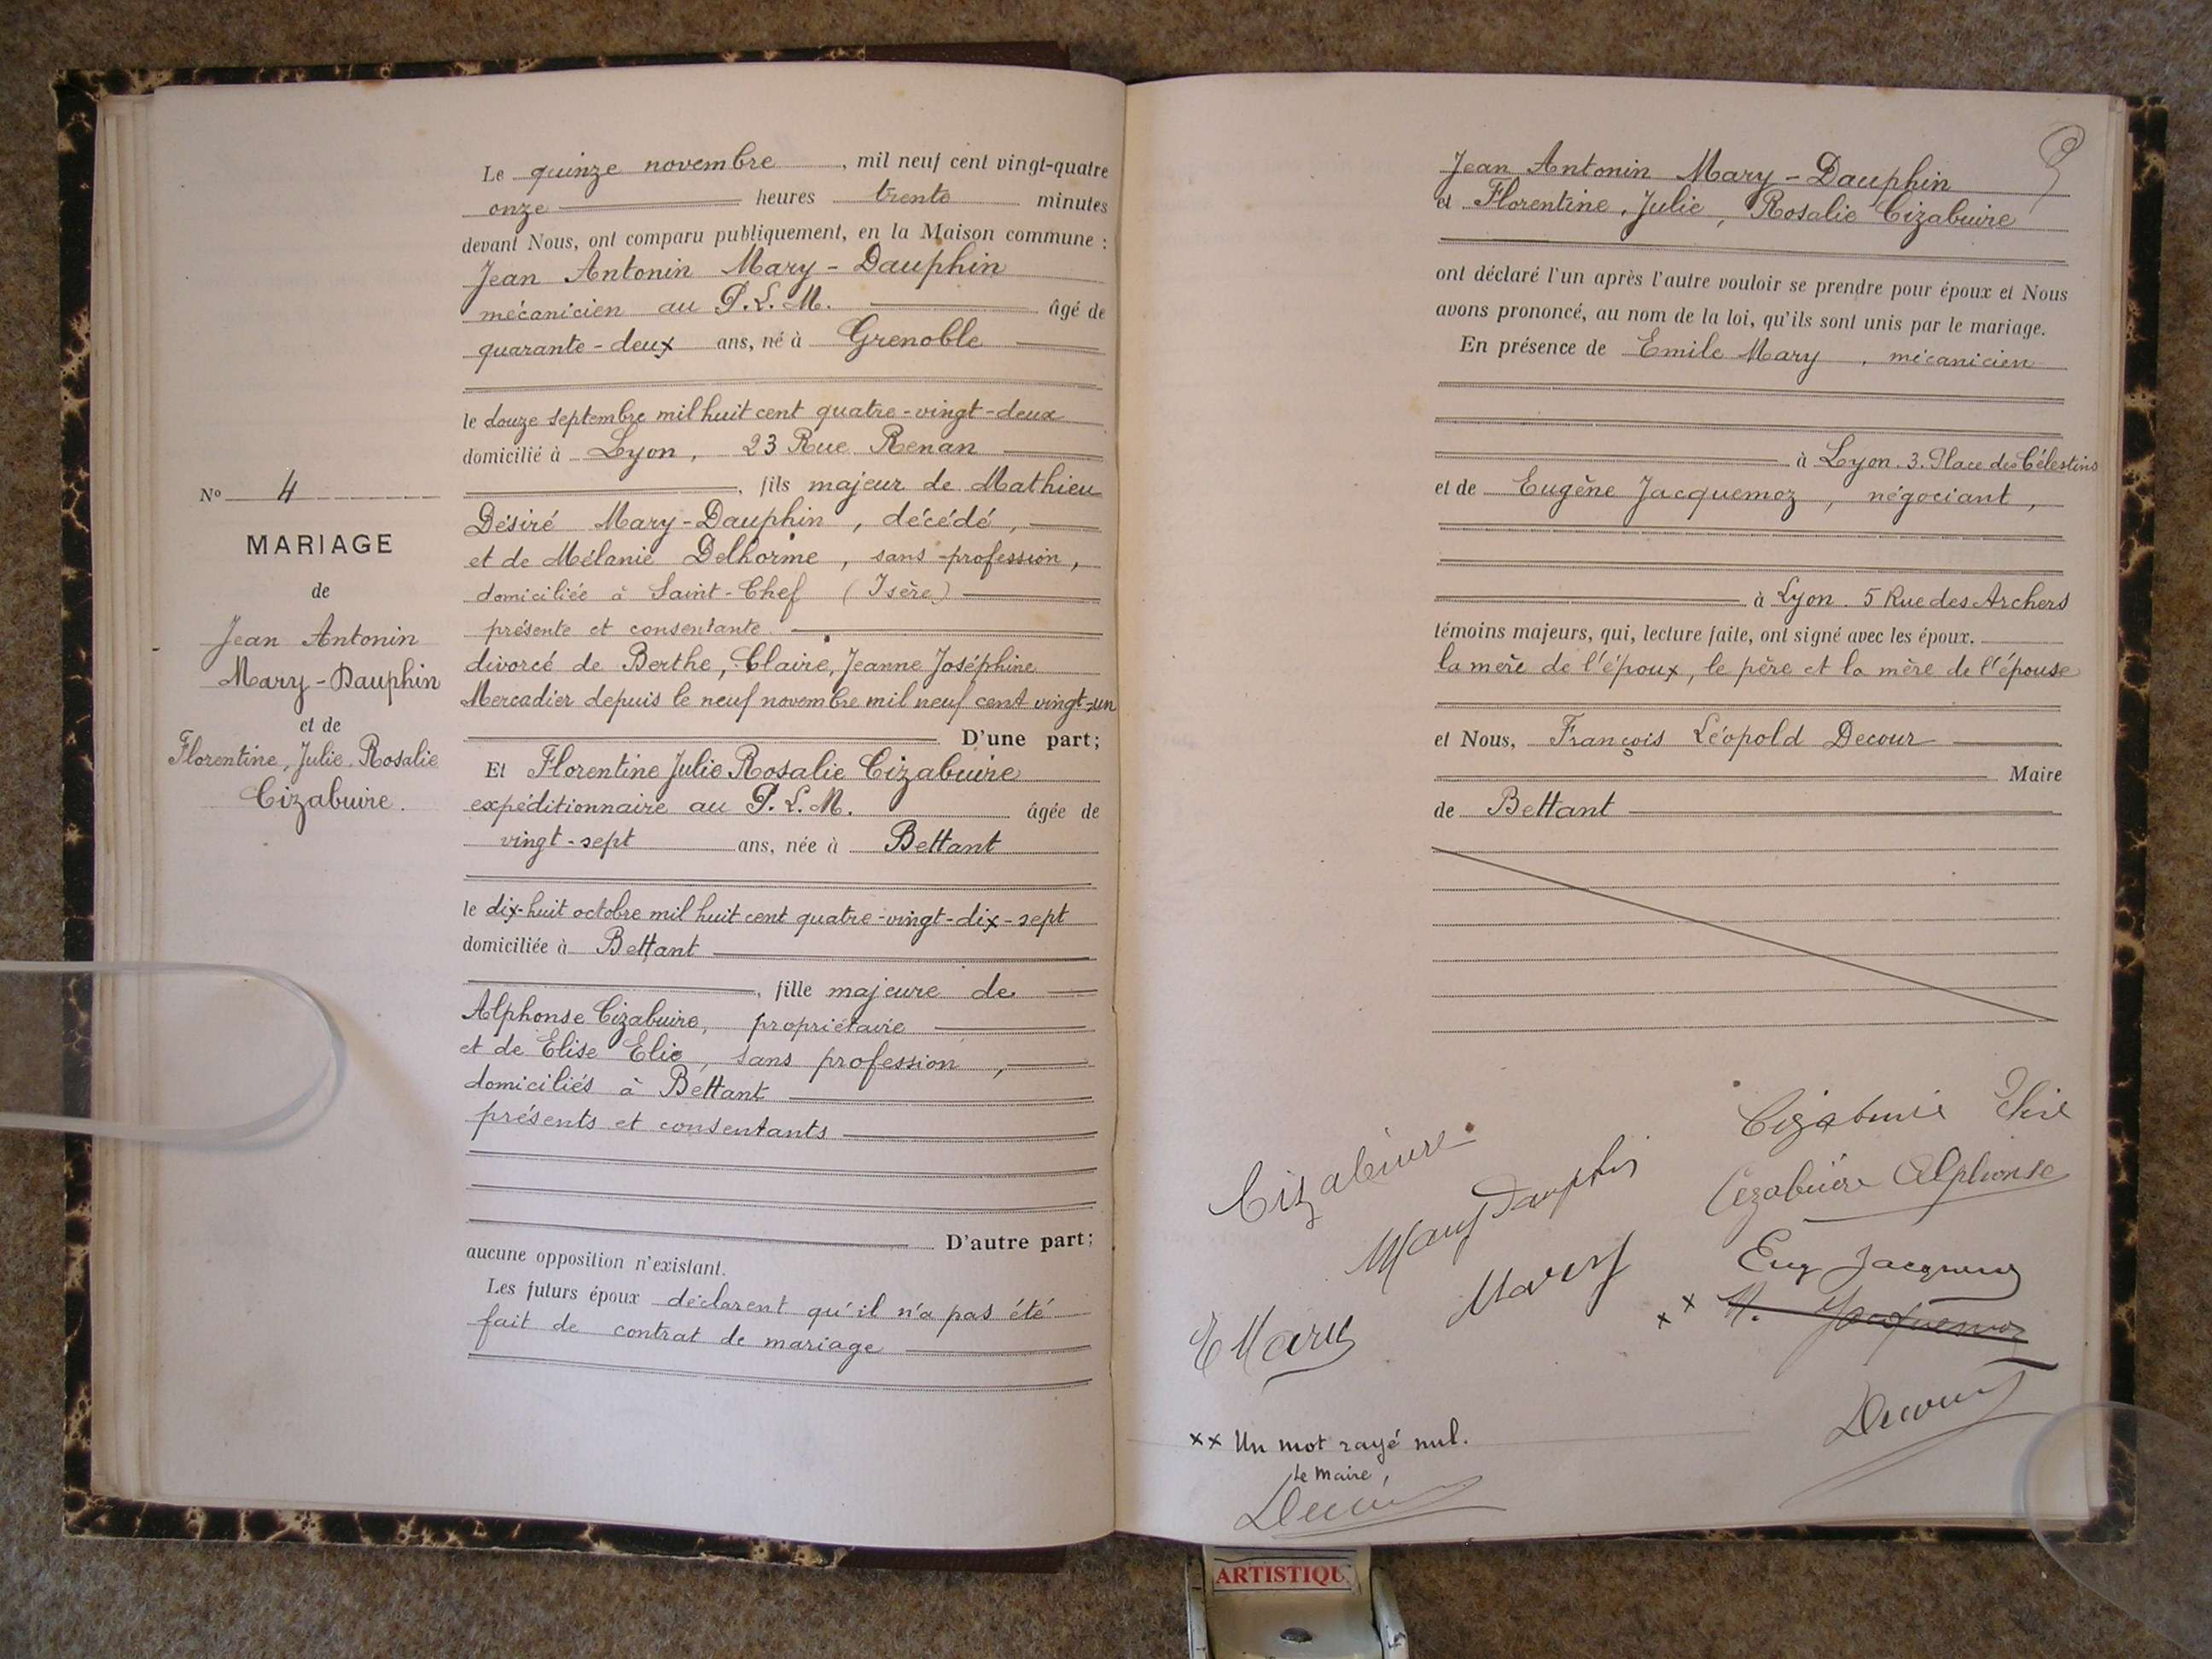 Le quinze novembre, mil neuf cent vingt-quatre
onze heures trente minutes
devant Nous, ont comparu publiquement, en la Maison commune :
Jean Antonin Mary-Dauphin
mécanicien au P.L.M. âgé de
quarante-deux ans, né à Grenoble
le douze septembre mil huit cent quatre-vingt-deux
domicilié à Lyon, 23 Rue Renan
, fils majeur de Mathieu
Désiré Mary-Dauphin, décédé,
et de Mélanie Delhorme, sans profession,
domiciliée à Saint-Chef (Isère)
présente et consentante.
divorcé de Berthe, Claire, Jeanne Joséphine
Mercadier depuis le neuf novembre mil neuf cent vingt-un
D'une part;
Et Florentine Julie Rosalie Cizabuire
expéditionnaire au P.L.M. âgée de
vingt-sept ans, née à Bettant
le dix-huit octobre mil huit cent quatre-vingt-dix-sept
domiciliée à Bettant
, fille majeure de
Alphonse Cizabuire, propriétaire
et de Elise Elie, sans profession,
domiciliés à Bettant
présents et consentants
D'autre part;
aucune opposition n'existant.
Les futurs époux déclarent qu'il n'a pas été
fait de contrat de mariage
No 4
MARIAGE
de
Jean Antonin
Mary-Dauphin
et de
Florentine, Julie, Rosalie
Cizabuire.
Jean Antonin Mary-Dauphin
et Florentine, Julie, Rosalie Cizabuire
ont déclaré l'un après l'autre vouloir se prendre pour époux et Nous
avons prononcé, au nom de la loi, qu'ils sont unis par le mariage.
En présence de Emile Mary, mécanicien
à Lyon. 3. Place des Célestins
et de Eugène Jacquemoz, négociant,
à Lyon. 5 Rue des Archers
témoins majeurs, qui, lecture faite, ont signé avec les époux.
la mère de l'époux, le père et la mère de l'épouse
et Nous, François Léopold Decour
Maire
de Bettant
Cizabuire Elise
Cizabuire
Mary Dauphin
Cizabuire Alphonse
Eug Jacquemoz
Mary
E Mary
x x M. Jacquemoz
Decour
xx Un mot rayé nul.
Le Maire,
Decour
ARTISTIQU